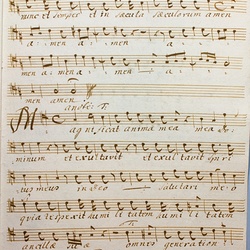 nunc et semper et in sæcula sæculorum amen
a: men a: :
men a: men a: : men a: :
men amen
Magnificat anima mea mea do:
minum et exultavit et exultavit spiri
tus meus in deo salutari meo
quia respexit humilitatem humilitatem
ancillæ suæ omnes generation: